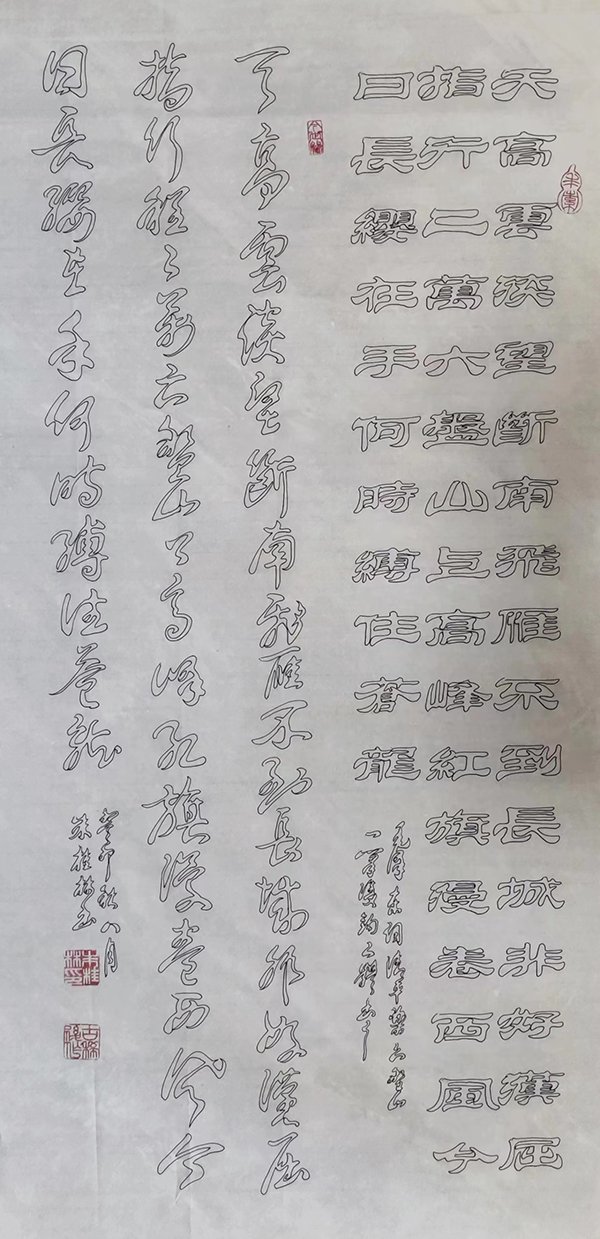 天高雲淡望斷南飛雁不到長城非好漢屈
指行二萬六盤山上高峰紅旗漫卷西風今
日長纓在手何時縛住蒼龍
毛澤東詞清平樂六盤山
一首雙鉤二體書之
天高雲淡望斷南飛雁不到長城非好漢屈
指行程二萬六盤山上高峰紅旗漫卷西風今
日長纓在手何時縛住蒼龍
癸卯秋八月
朱桂林書
朱桂林印